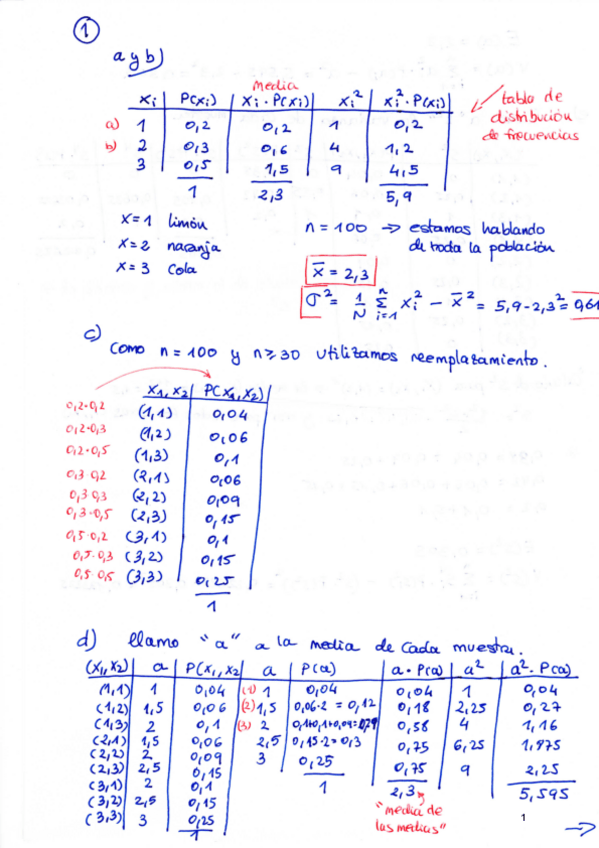 1
a y b)
media
xi | P(xi) | xi · P(xi) | xi² | xi² · P(xi)
a) 1 | 0,2 | 0,2 | 1 | 0,2
b) 2 | 0,3 | 0,6 | 4 | 1,2
3 | 0,5 | 1,5 | 9 | 4,5
1 | 2,3 | 5,9
tabla de
distribución
de frecuencias
x=1 limón
x=2 naranja
x=3 cola
n = 100 → estamos hablando
de toda la población
x̄ = 2,3
σ² = 1/N Σ i=1 n xi² - x̄² = 5,9 - 2,3² = 0,61
c)
como n = 100 y n ≥ 30 utilizamos reemplazamiento.
x1, x2 | P(x1, x2)
0,2·0,2 (1,1) | 0,04
0,2·0,3 (1,2) | 0,06
0,2·0,5 (1,3) | 0,1
0,3 0,2 (2,1) | 0,06
0,3 0,3 (2,2) | 0,09
0,3·0,5 (2,3) | 0,15
0,5·0,2 (3,1) | 0,1
0,5·0,3 (3,2) | 0,15
0,5·0,5 (3,3) | 0,25
1
d) llamo "a" a la media de cada muestra.
(x1, x2) | a | P(x1, x2) | a | P(a) | a · P(a) | a² | a² · P(a)
(1,1) | 1 | 0,04 | (1) 1 | 0,04 | 0,04 | 1 | 0,04
(1,2) | 1,5 | 0,06 | (2) 1,5 | 0,06·2 = 0,12 | 0,18 | 2,25 | 0,27
(1,3) | 2 | 0,1 | (3) 2 | 0,1+0,1+0,09=0,29 | 0,58 | 4 | 1,16
(2,1) | 1,5 | 0,06 | 2,5 | 0,15·2=0,3 | 0,75 | 6,25 | 1,875
(2,2) | 2 | 0,09 | 3 | 0,25 | 0,75 | 9 | 2,25
(2,3) | 2,5 | 0,15 | 1 | 2,3 | 5,595
(3,1) | 2 | 0,1
(3,2) | 2,5 | 0,15
(3,3) | 3 | 0,25
1
"media de
las medias"
1
→